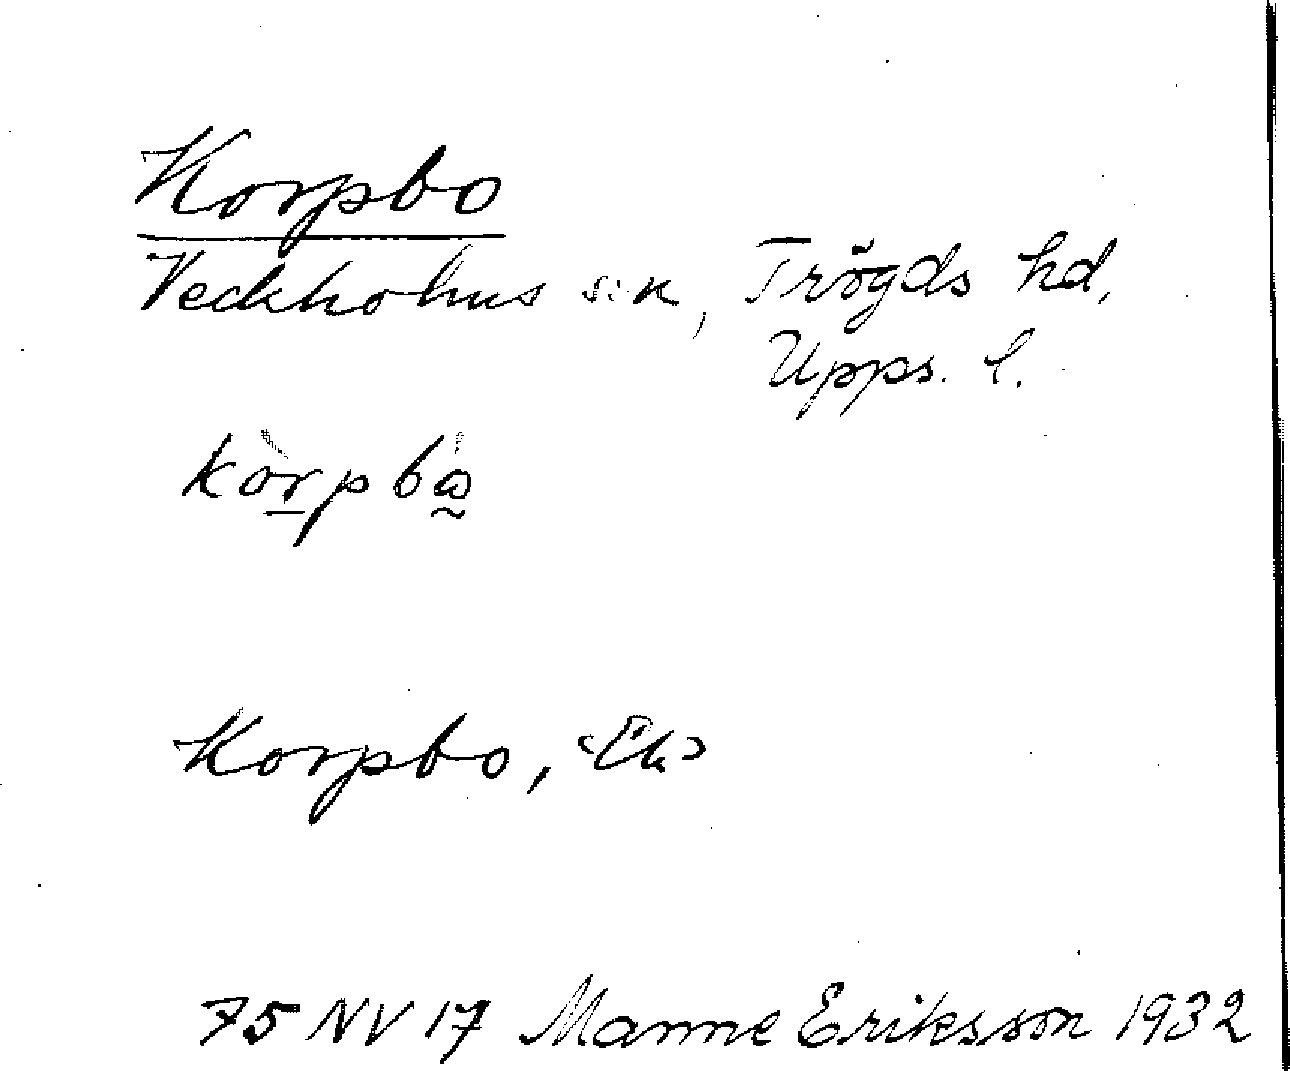 Korpbo
Veckholms sn, Trögds hd,
Upps. l.
Korpbo, <Ek>
75 NV 17 Manne Eriksson 1932